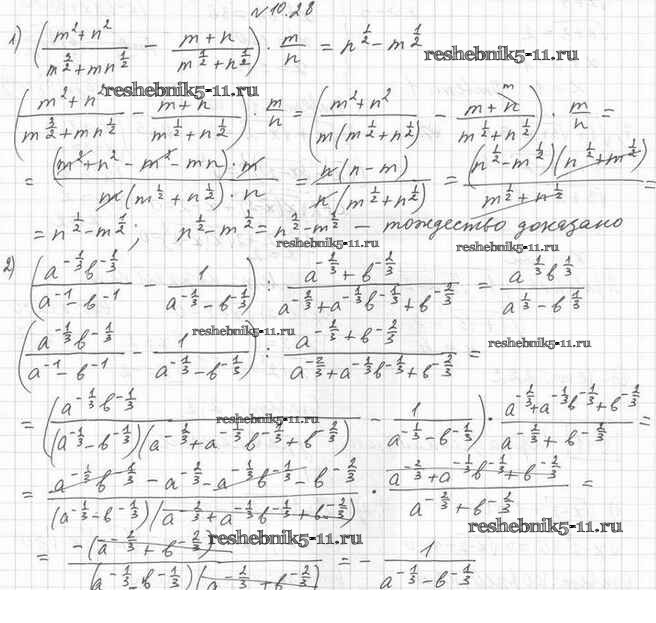 №10.28
1) (\frac{m^2+n^2}{m^{\frac{3}{2}}+mn^{\frac{1}{2}}} - \frac{m+n}{m^{\frac{1}{2}}+n^{\frac{1}{2}}}) · \frac{m}{n} = n^{\frac{1}{2}} - m^{\frac{1}{2}}
reshebnik5-11.ru
reshebnik5-11.ru
(\frac{m^2+n^2}{m^{\frac{3}{2}}+mn^{\frac{1}{2}}} - \frac{m+n}{m^{\frac{1}{2}}+n^{\frac{1}{2}}}) · \frac{m}{n} = (\frac{m^2+n^2}{m(m^{\frac{1}{2}}+n^{\frac{1}{2}})} - \frac{m+n}{m^{\frac{1}{2}}+n^{\frac{1}{2}}}^{m}) · \frac{m}{n} =
= \frac{(m^2+n^2-m^2-mn)·m}{m(m^{\frac{1}{2}}+n^{\frac{1}{2}})·n} = \frac{n(n-m)}{n(m^{\frac{1}{2}}+n^{\frac{1}{2}})} = \frac{(n^{\frac{1}{2}}-m^{\frac{1}{2}})(n^{\frac{1}{2}}+m^{\frac{1}{2}})}{m^{\frac{1}{2}}+n^{\frac{1}{2}}} =
= n^{\frac{1}{2}}-m^{\frac{1}{2}}; n^{\frac{1}{2}}-m^{\frac{1}{2}} = n^{\frac{1}{2}}-m^{\frac{1}{2}} – тождество доказано
reshebnik5-11.ru reshebnik5-11.ru
2) (\frac{a^{-\frac{1}{3}}b^{-\frac{1}{3}}}{a^{-1}-b^{-1}} - \frac{1}{a^{-\frac{1}{3}}-b^{-\frac{1}{3}}}) : \frac{a^{-\frac{2}{3}}+b^{-\frac{2}{3}}}{a^{-\frac{2}{3}}+a^{-\frac{1}{3}}b^{-\frac{1}{3}}+b^{-\frac{2}{3}}} = \frac{a^{\frac{1}{3}}b^{\frac{1}{3}}}{a^{\frac{1}{3}}-b^{\frac{1}{3}}}
reshebnik5-11.ru reshebnik5-11.ru
(\frac{a^{-\frac{1}{3}}b^{-\frac{1}{3}}}{a^{-1}-b^{-1}} - \frac{1}{a^{-\frac{1}{3}}-b^{-\frac{1}{3}}}) : \frac{a^{-\frac{2}{3}}+b^{-\frac{2}{3}}}{a^{-\frac{2}{3}}+a^{-\frac{1}{3}}b^{-\frac{1}{3}}+b^{-\frac{2}{3}}} =
reshebnik5-11.ru
= (\frac{a^{-\frac{1}{3}}b^{-\frac{1}{3}}}{(a^{-\frac{1}{3}}-b^{-\frac{1}{3}})(a^{-\frac{2}{3}}+a^{-\frac{1}{3}}b^{-\frac{1}{3}}+b^{-\frac{2}{3}})} - \frac{1}{a^{-\frac{1}{3}}-b^{-\frac{1}{3}}}) · \frac{a^{-\frac{2}{3}}+a^{-\frac{1}{3}}b^{-\frac{1}{3}}+b^{-\frac{2}{3}}}{a^{-\frac{2}{3}}+b^{-\frac{2}{3}}} =
= \frac{a^{-\frac{1}{3}}b^{-\frac{1}{3}}-a^{-\frac{2}{3}}-a^{-\frac{1}{3}}b^{-\frac{1}{3}}-b^{-\frac{2}{3}}}{(a^{-\frac{1}{3}}-b^{-\frac{1}{3}})(a^{-\frac{2}{3}}+a^{-\frac{1}{3}}b^{-\frac{1}{3}}+b^{-\frac{2}{3}})} · \frac{a^{-\frac{2}{3}}+a^{-\frac{1}{3}}b^{-\frac{1}{3}}+b^{-\frac{2}{3}}}{a^{-\frac{2}{3}}+b^{-\frac{2}{3}}} =
reshebnik5-11.ru reshebnik5-11.ru
= \frac{-(a^{-\frac{2}{3}}+b^{-\frac{2}{3}})}{(a^{-\frac{1}{3}}-b^{-\frac{1}{3}})(a^{-\frac{2}{3}}+b^{-\frac{2}{3}})} = -\frac{1}{a^{-\frac{1}{3}}-b^{-\frac{1}{3}}}